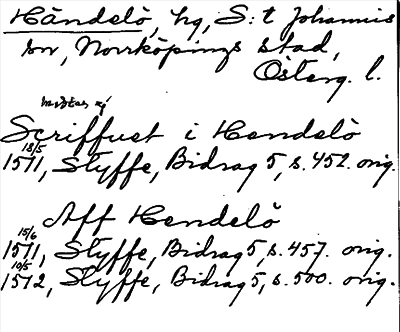 Händelö, hg, S:t Johannis
sn, Norrköpings stad,
Österg. l.
Scriffuet i Hendelö
18/5
1511, Styffe, Bidrag 5, s. 452. orig.
Aff Hendelö
15/6
1511, Styffe, Bidrag 5, s. 457. orig.
10/5
1512, Styffe, Bidrag 5, s. 500. orig.